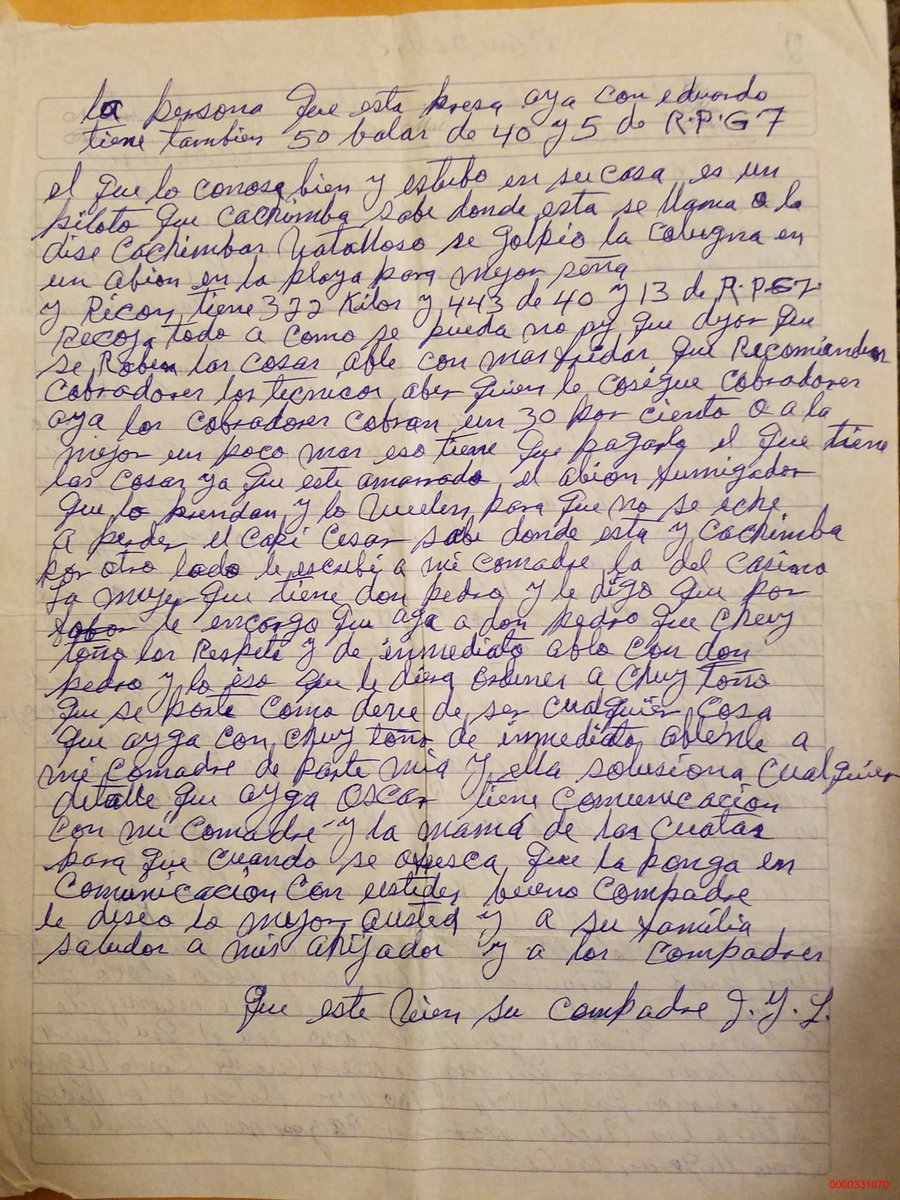 la persona que esta presa aya con eduardo
tiene tambien 50 balas de 40 y 5 de R.P.G 7
el que lo conose bien y estubo en su casa es un
piloto que cachimba sabe donde esta se llama o le
dise Cachimbas Vatalloso se golpio la colugna en
un abion en la playa para mejor seña
y Ricon tiene 322 Kilos y 443 de 40 y 13 de R.P.G7.
Recoja todo a como se pueda no que que
se Roben las cosas able con mas que Recomienden
Cobradores los tecnicos aber quien le cosigue cobradores
aya los cobradores cobran un 30 por ciento o a la
mejor un poco mas eso tiene que pagarlo el que tiene
las cosas ya que este amarrado el abion fumigador
que lo prendan y lo vuelen para que no se eche
a perder el capi Cesar sabe donde esta y cachimba
por otro lado le escribi a mi comadre la del casino
la mujer que tiene don pedro y le digo que por
le encargo que aga a don pedro que Chuy
toño los Respete y de inmediato ablo con don
pedro y lo iso que le diera ordenes a chuy toño
que se porte como deve de ser cualquier cosa
que ayga con chuy toño de inmediato ablenle a
mi comadre de parte mia y ella solusiona cualquier
detalle que ayga Oscar tiene comunicación
con mi comadre y la mamá de las cuatas
para que cuando se ofresca que la ponga en
comunicación con ustedes bueno compadre
le deseo lo mejor austed y a su familia
saludos a mis ahijados y a los compadres
Que este bien su compadre J. G. L.
0000331070